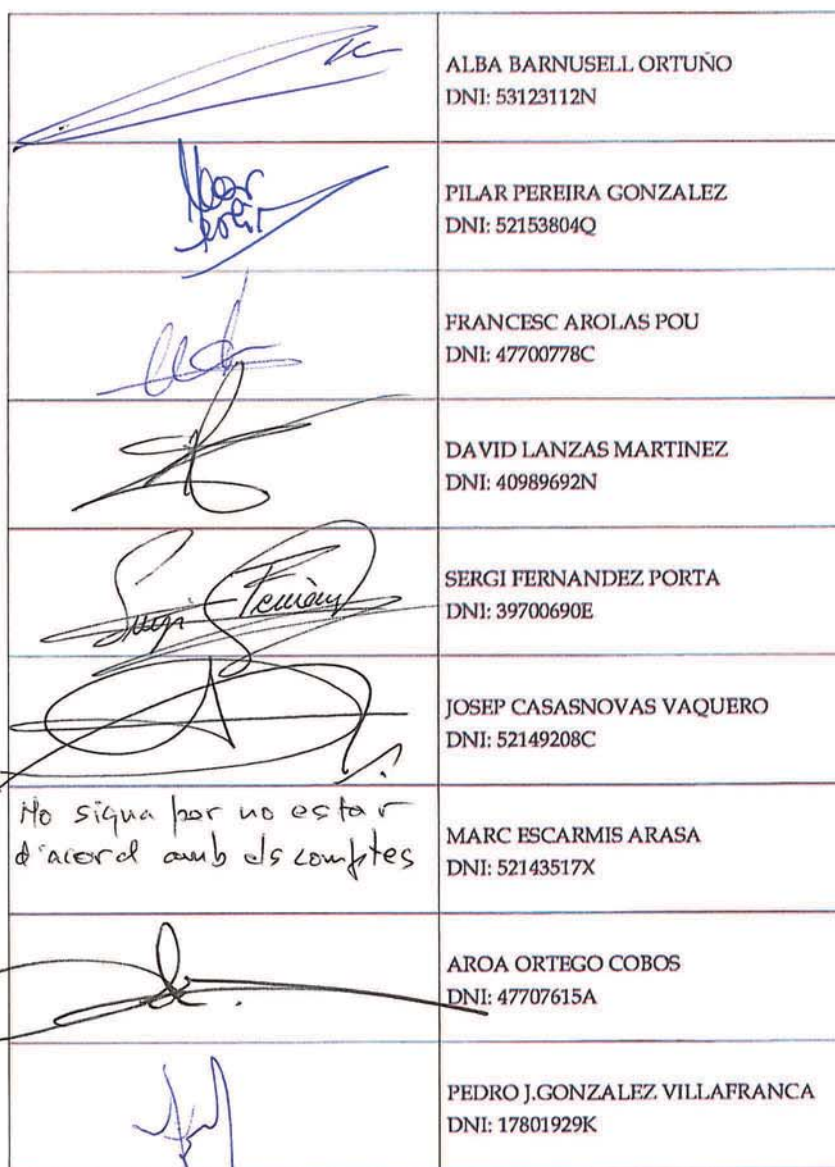 ALBA BARNUSELL ORTUÑO
DNI: 53123112N
PILAR PEREIRA GONZALEZ
DNI: 52153804Q
FRANCESC AROLAS POU
DNI: 47700778C
DAVID LANZAS MARTINEZ
DNI: 40989692N
Sergi
SERGI FERNANDEZ PORTA
DNI: 39700690E
JOSEP CASASNOVAS VAQUERO
DNI: 52149208C
No signa per no estar
d'acord amb els comptes
MARC ESCARMIS ARASA
DNI: 52143517X
AROA ORTEGO COBOS
DNI: 47707615A
PEDRO J.GONZALEZ VILLAFRANCA
DNI: 17801929K